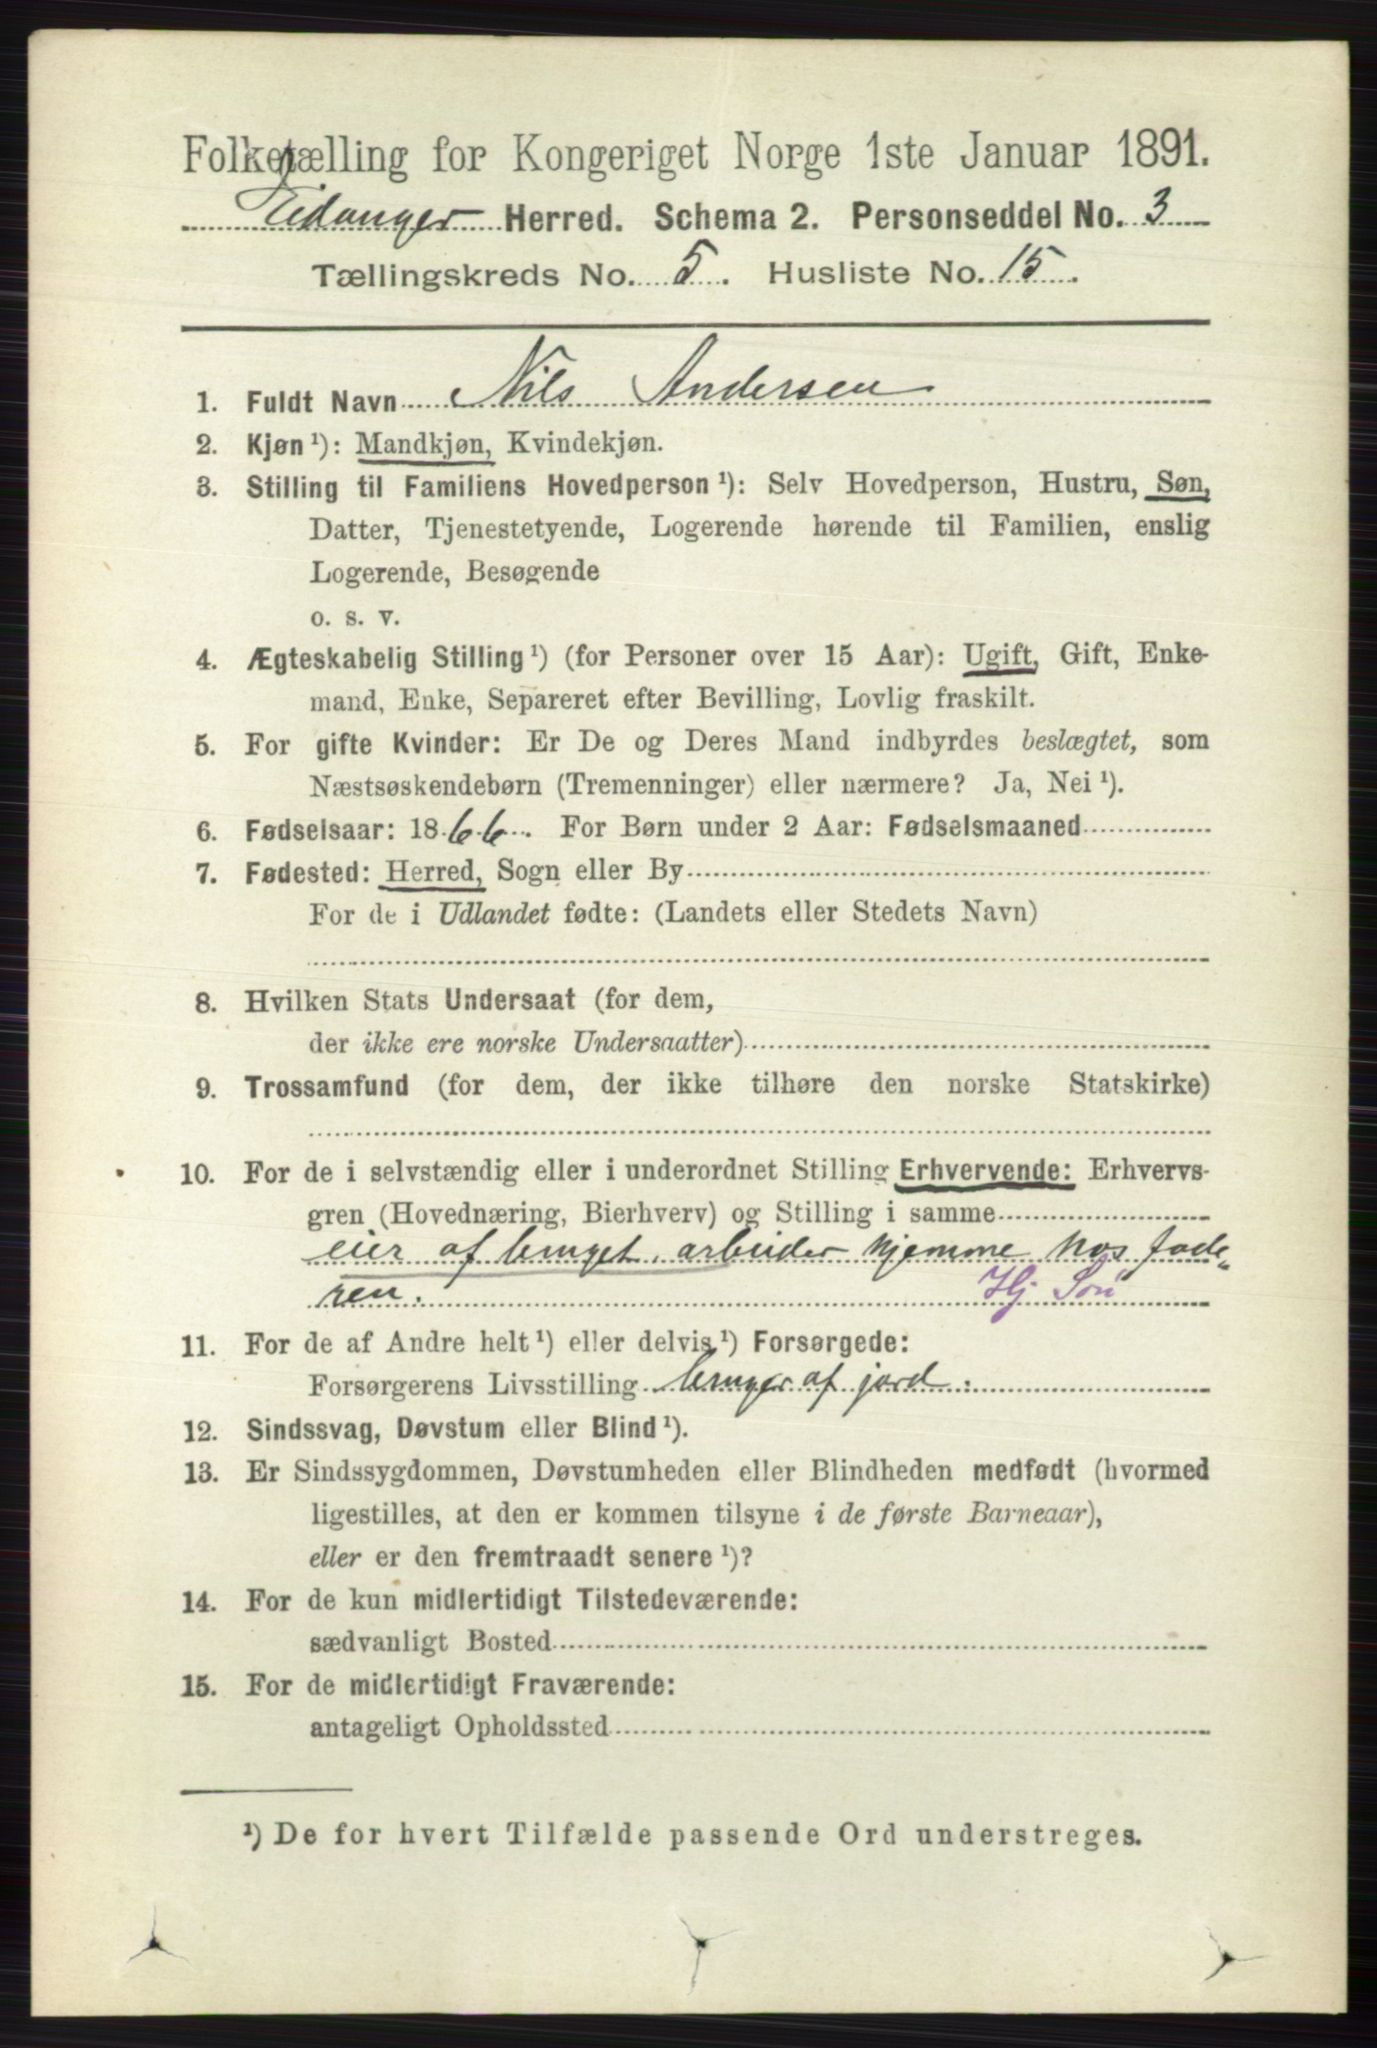 Folketælling for Kongeriget Norge 1ste Januar 1891.
Eidanger Herred. Schema 2. Personseddel No. 3
Tællingskreds No. 5. Husliste No. 15.
1. Fuldt Navn Nils Andersen
2. Kjøn ¹): Mandkjøn, Kvindekjøn.
3. Stilling til Familiens Hovedperson ¹): Selv Hovedperson, Hustru, Søn,
Datter, Tjenestetyende, Logerende hørende til Familien, enslig
Logerende, Besøgende
o. s. v.
4. Ægteskabelig Stilling ¹) (for Personer over 15 Aar): Ugift, Gift, Enke-
mand, Enke, Separeret efter Bevilling, Lovlig fraskilt.
5. For gifte Kvinder: Er De og Deres Mand indbyrdes beslægtet, som
Næstsøskendebørn (Tremenninger) eller nærmere? Ja, Nei ¹).
6. Fødselsaar: 1866. For Børn under 2 Aar: Fødselsmaaned
7. Fødested: Herred, Sogn eller By
For de i Udlandet fødte: (Landets eller Stedets Navn)
8. Hvilken Stats Undersaat (for dem,
der ikke ere norske Undersaatter)
9. Trossamfund (for dem, der ikke tilhøre den norske Statskirke)
10. For de i selvstændig eller i underordnet Stilling Erhvervende: Erhvervs-
gren (Hovednæring, Bierhverv) og Stilling i samme
eier af bruget. arbeider hjemme hos fade-
ren. Hj Søn
11. For de af Andre helt ¹) eller delvis ¹) Forsørgede:
Forsørgerens Livsstilling bruger af jord.
12. Sindssvag, Døvstum eller Blind ¹).
13. Er Sindssygdommen, Døvstumheden eller Blindheden medfødt (hvormed
ligestilles, at den er kommen tilsyne i de første Barneaar),
eller er den fremtraadt senere ¹)?
14. For de kun midlertidigt Tilstedeværende:
sædvanligt Bosted
15. For de midlertidigt Fraværende:
antageligt Opholdssted
¹) De for hvert Tilfælde passende Ord understreges.